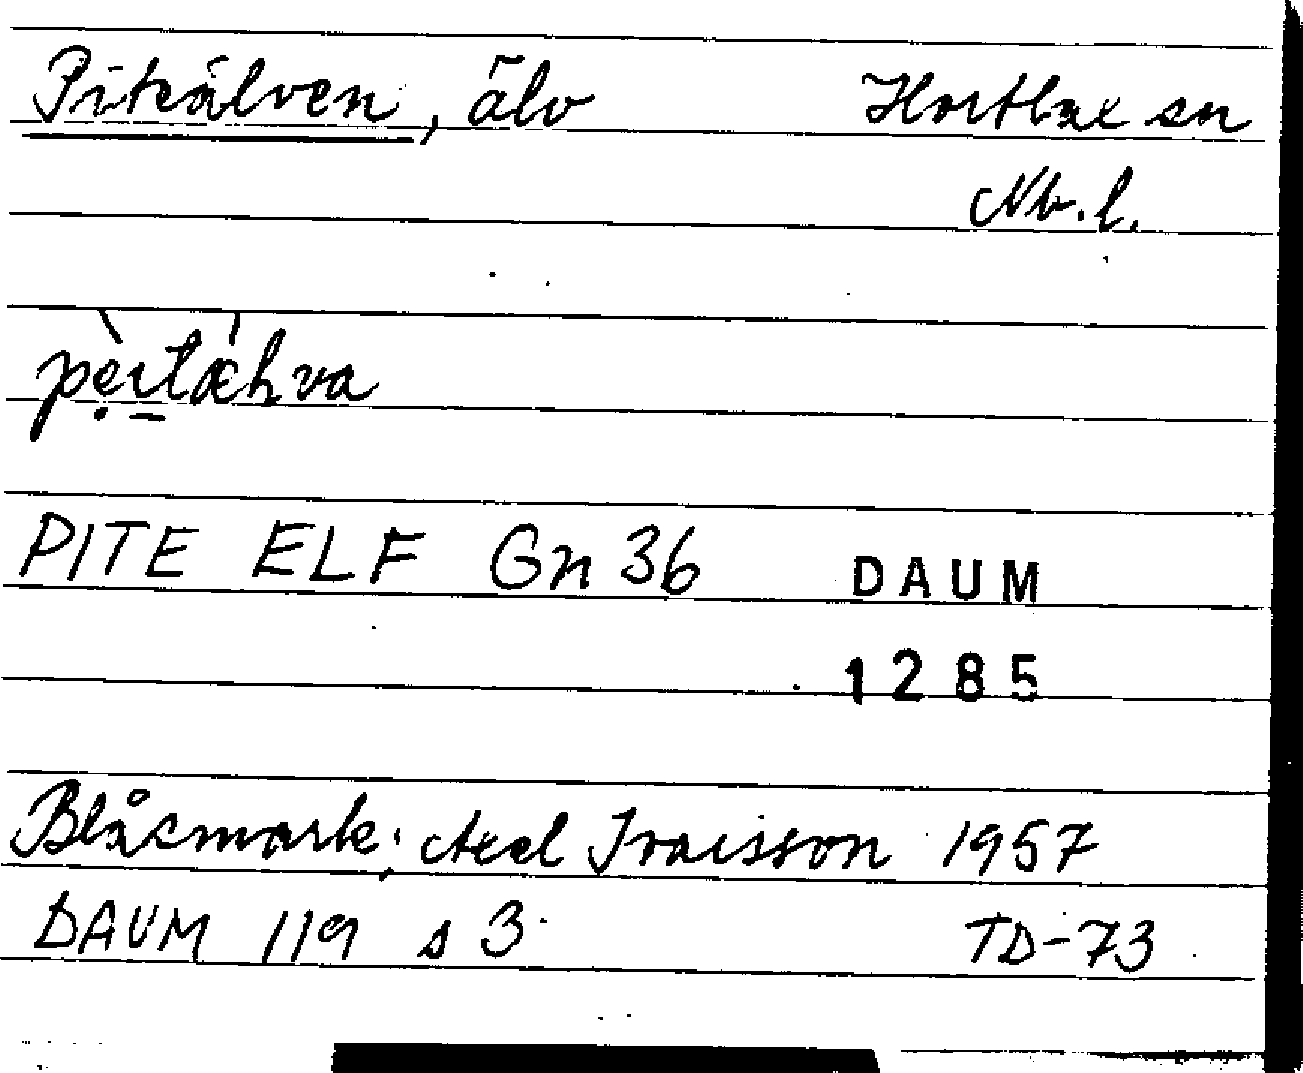 Piteälven, älv Hortlax sn
Nb. l.
pẹ̀ıt̲ǽhva
PITE ELF Gn 36 DAUM
1285
Blåsmark; Axel Israelsson 1957
DAUM 119 s 3 TD-73